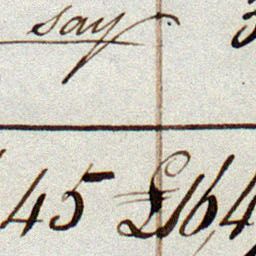 say 3
45 £16,4